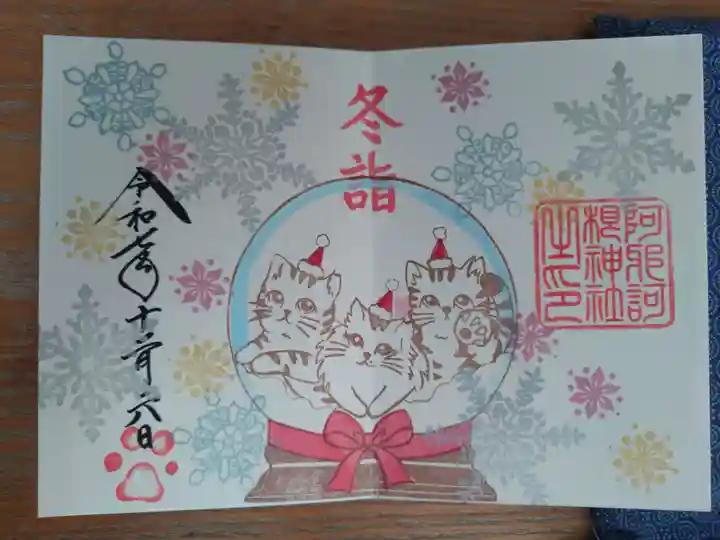 阿邪訶
根神社
之印
冬詣
令和七年十二月六日